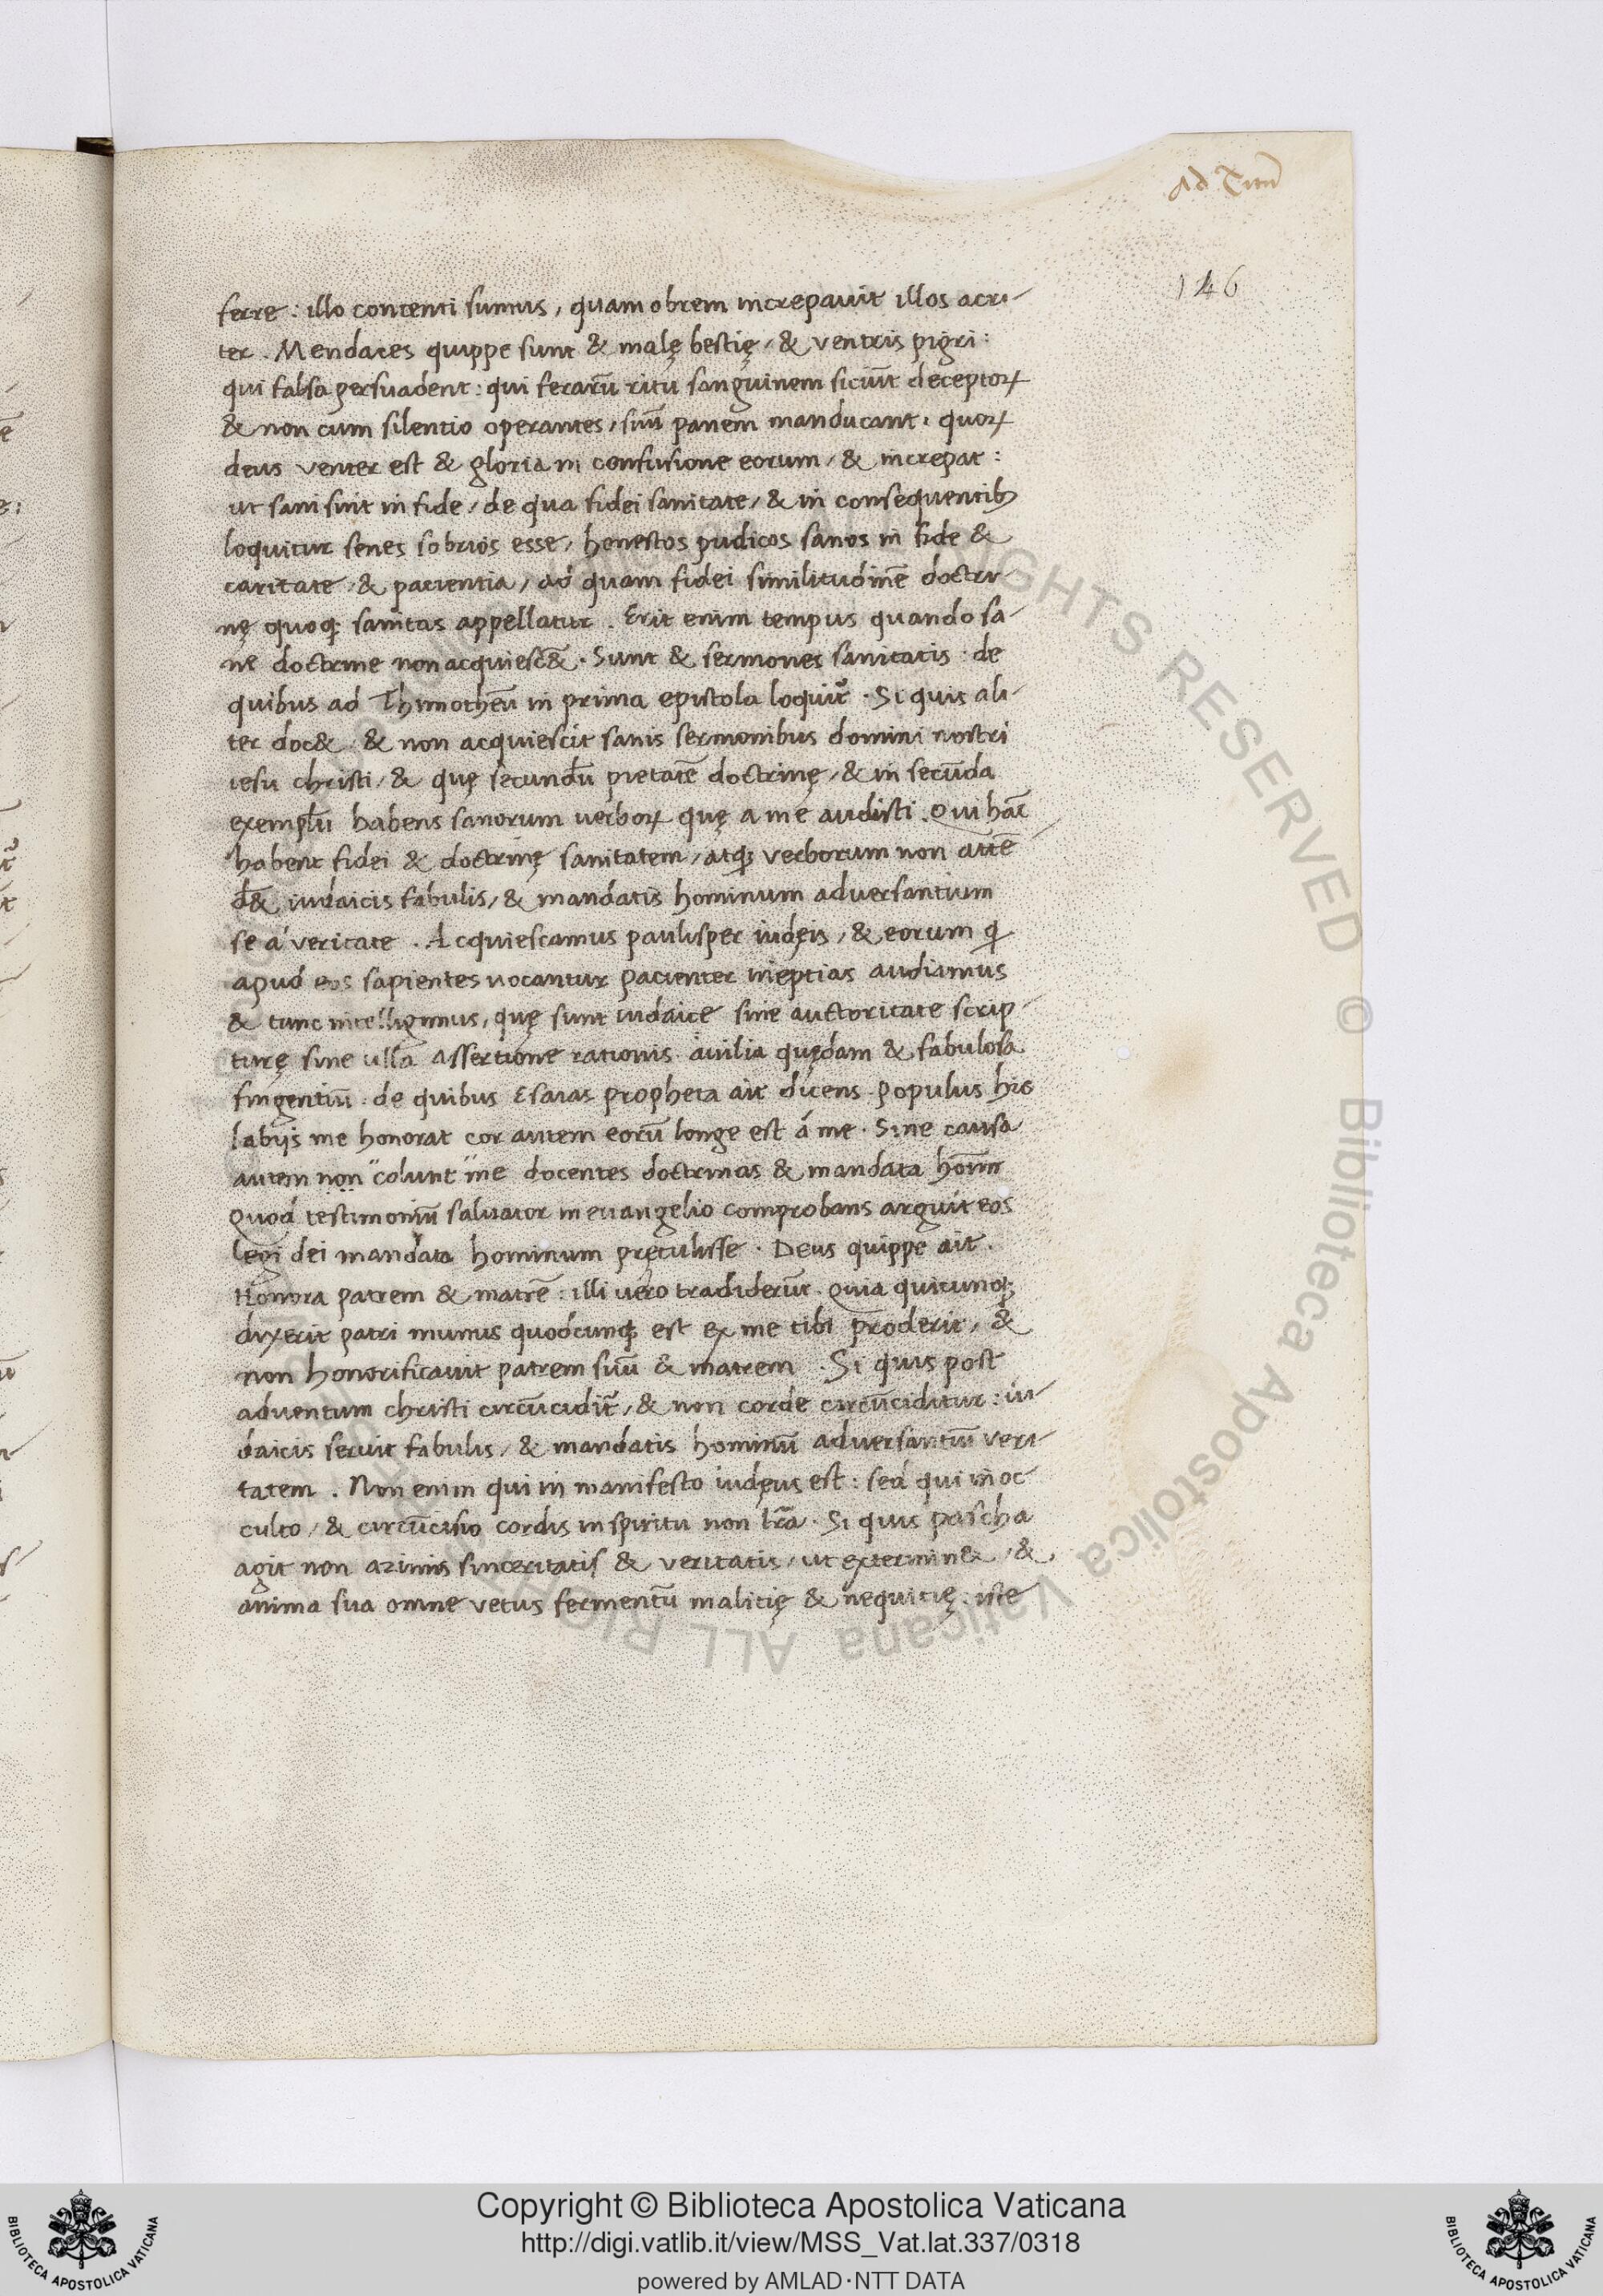 Ad Titū
146
ferre: illo contenti sumus, quam obrem increpavit illos acri-
ter. Mendaces quippe sunt & malę bestię, & ventris pigri:
qui falsa persuadent: qui ferarū ritu sanguinem siciūt deceptoꝝ
& non cum silentio operantes, suū panem manducant. quoꝝ
deus venter est & gloria in confusione eorum, & increpat:
ut sani sint in fide, de qua fidei sanitate, & in consequentibꝫ
loquitur senes sobrios esse, honestos pudicos sanos in fide &
caritate & pacientia, ad quam fidei similitudinē doctri-
nę quoqꝫ sanitas appellatur. Erit enim tempus quando sa-
ne doctrine non acquiesc&̄. Sunt & sermones sanitatis: de
quibus ad Thimotheū in prima epistola loquit̄. Si quis ali-
ter doc&, & non acquiescit sanis sermonibus domini nostri
iesu christi, & quę secundū pietatē doctrinę, & in secūda
exemplū habens sanorum verboꝝ quę a me audisti. Qui hāc
habent fidei & doctrinę sanitatem, atqꝫ verborum non attē
d&̄ iudaicis fabulis, & mandatis hominum adversantium
se á veritate. Acquiescamus paulisper iudęis, & eorum q̄
apud eos sapientes vocantur pacienter ineptias audiamus
& tunc intelligimus, quę sunt iudaice sine auctoritate scrip-
turę sine ulla assertione rationis anilia quędam & fabulosa
fingentiū. de quibus Esaias propheta ait dicens populus hic
labijs me honorat cor autem eorū longe est á me. Sine causa
autem non colunt me docentes doctrinas & mandata homīn̄
Quod testimoniū salvator in evangelio comprobans arguit eos
legi dei mandata hominum prętulisse. Deus quippe ait.
Honora patrem & matrē: illi vero tradiderūt. Quia quicunqꝫ
dixerit patri munus quodcunqꝫ est ex me tibi proderit, &
non honorificavit patrem suū & matrem. Si quis post
adventum christi circūcidit̄, & non corde circūciditur: iu-
daicis servit fabulis, & mandatis hominū adversantiū veri-
tatem. Non enim qui in manifesto iudęus est: sed qui in oc
culto, & circūcisio cordis in spiritu non lr̄a. Si quis pascha
agit non azimis sinceritatis & veritatis, ut extermin&, &
anima sua omne vetus fermentū malicię & nequicię: iste
Copyright © Biblioteca Apostolica Vaticana
http://digi.vatlib.it/view/MSS_Vat.lat.337/0318
powered by AMLAD·NTT DATA